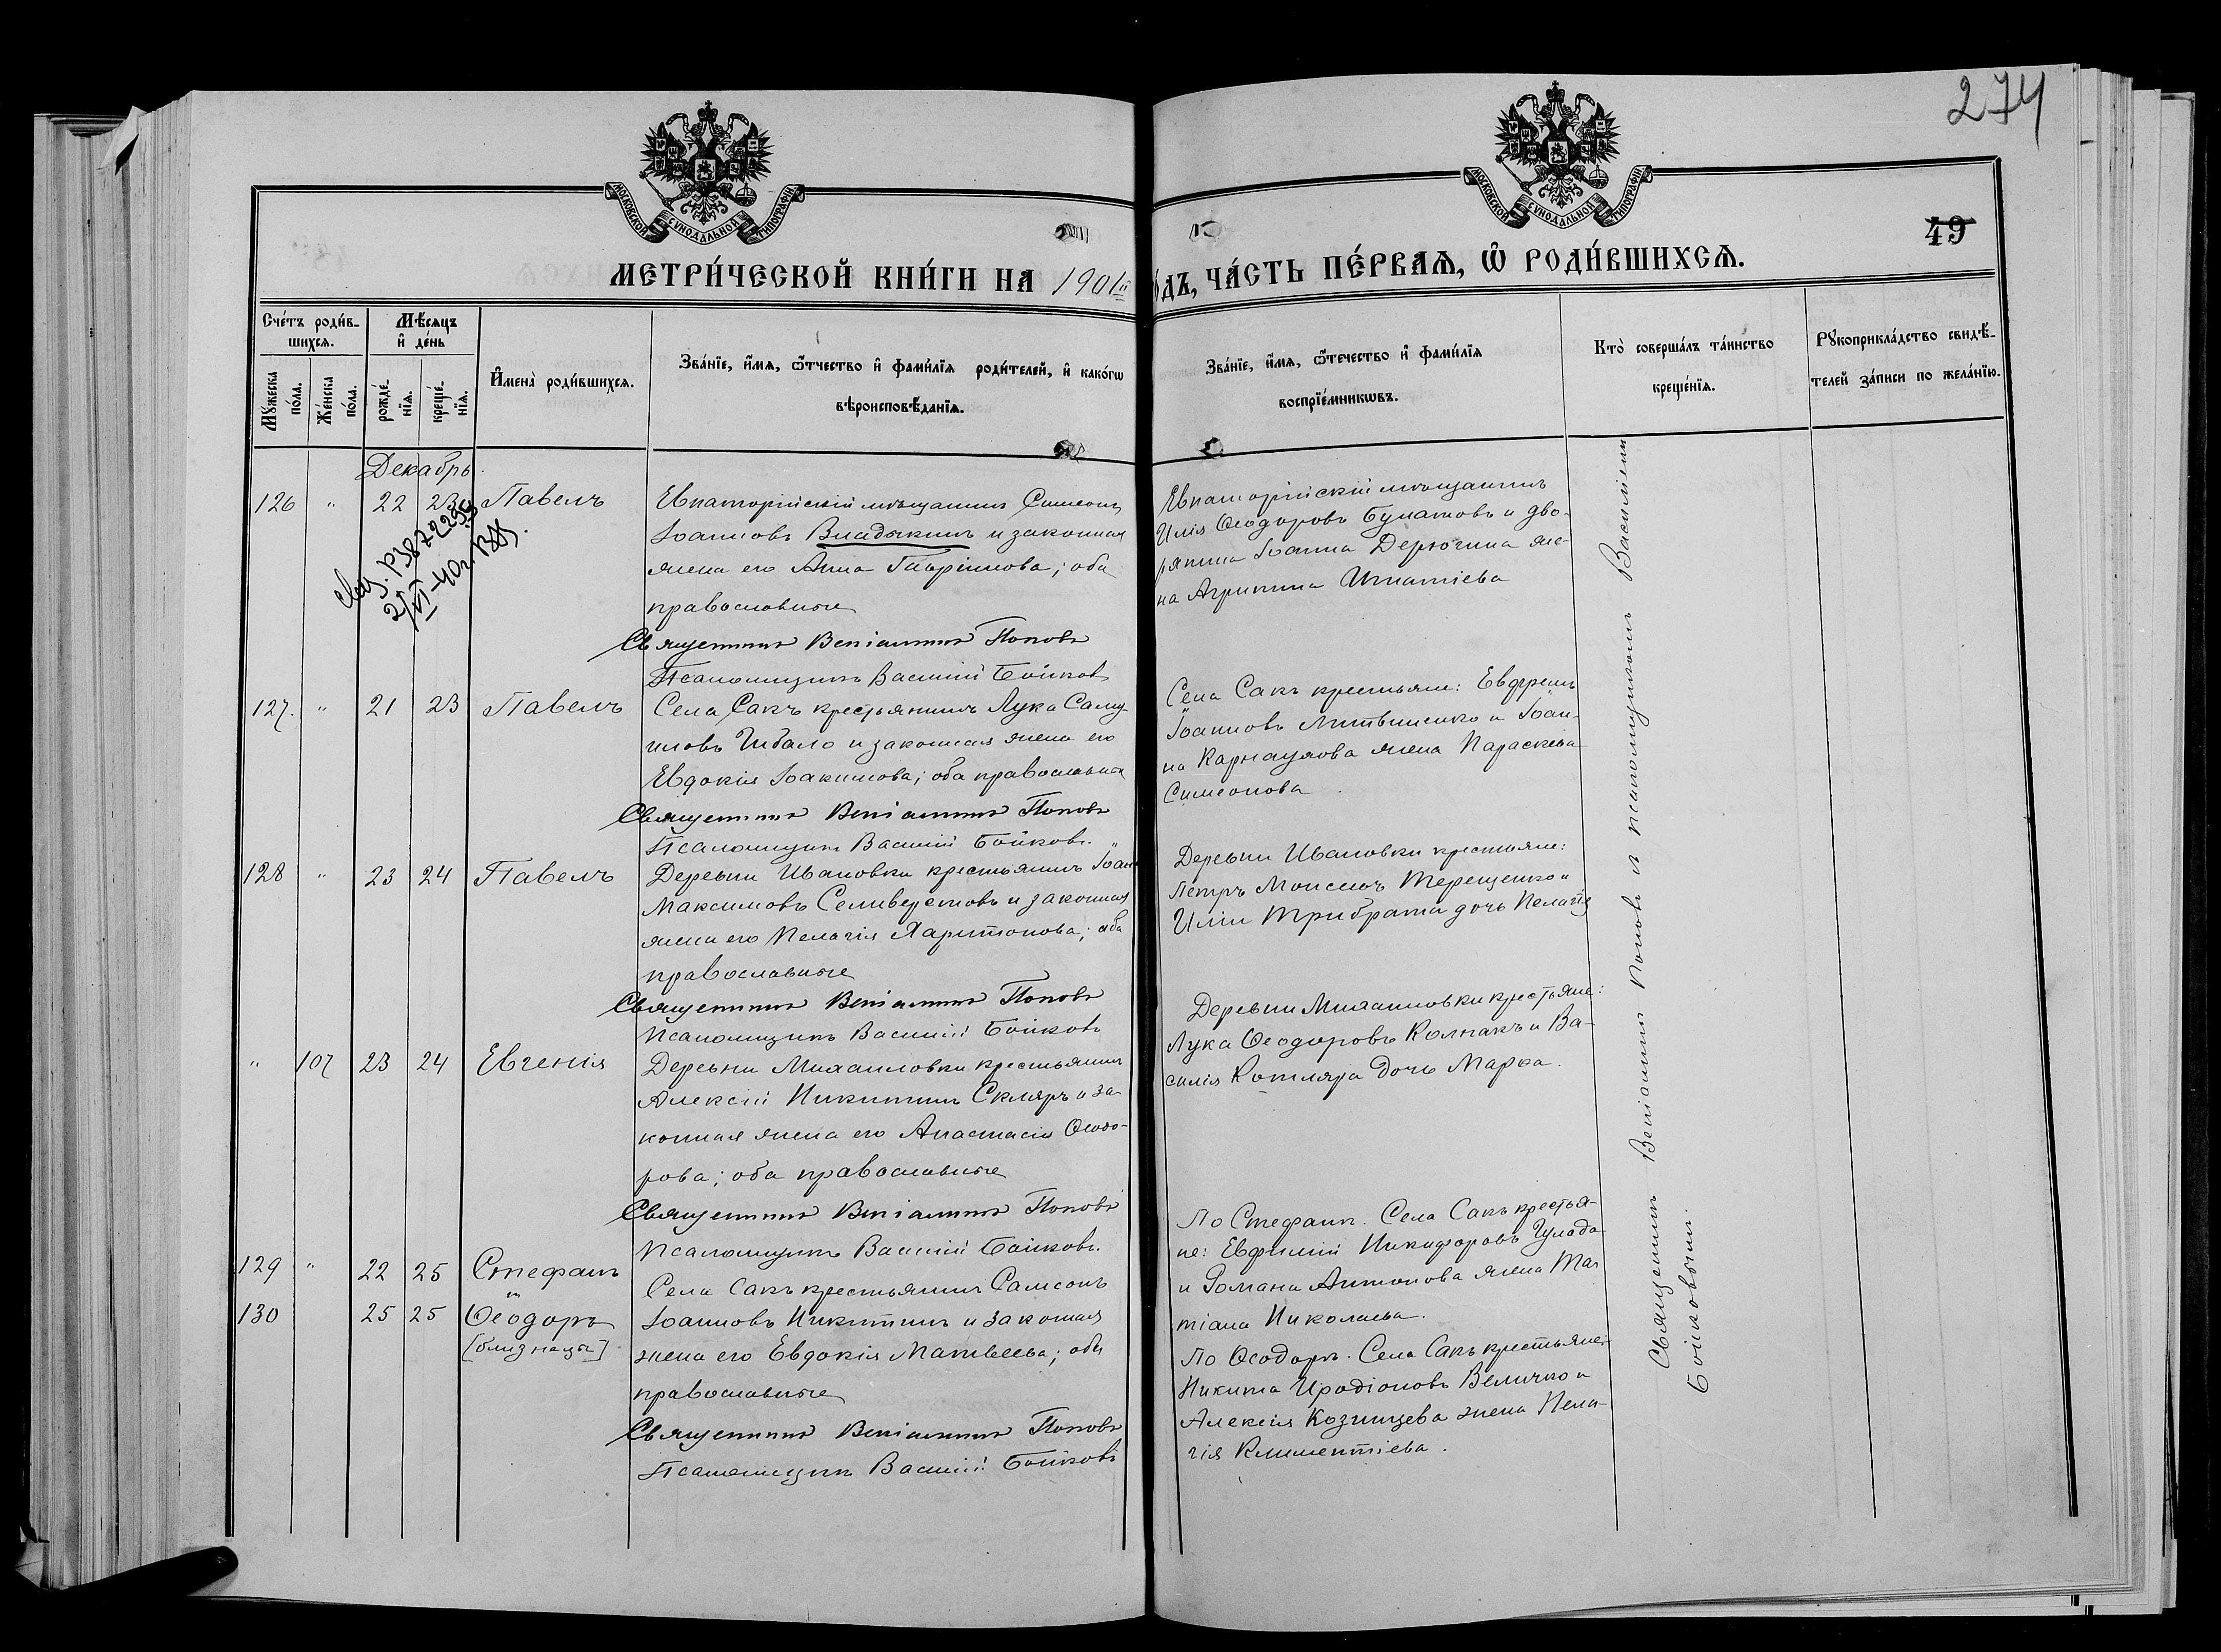 274
МОСКОВСКОЙ СУНОДАЛЬНОЙ ТИПОГРАФІИ
МОСКОВСКОЙ СУНОДАЛЬНОЙ ТИПОГРАФІИ
49
МЕТРИ́ЧЕСКОЙ КНИ́ГИ НА 1901й
О́ДЪ, ЧА́СТЬ ПЕ́РВАѦ, Ѽ РОДИ́ВШИХСѦ.
Сче́тъ роди́в-
шихсѧ.
Мꙋжеска
по́ла.
Же́нска
по́ла.
Мѣ́сѧцъ
и҆ де́нь
рожде́-
нїѧ.
креще́-
нїѧ.
И҆мена̀ роди́вшихсѧ.
Зва́нїе, и҆́мѧ, ѻ҆́тчество и҆ фами́лїѧ роди́телей, и҆ како́гѡ
вѣроисповѣ́данїѧ.
Зва́нїе, и҆́мѧ, ѻ҆́течество и҆ фами́лїѧ
воспрїе́мникѡвъ.
Кто̀ соверша́лъ та́инство
креще́нїѧ.
Рꙋкоприкла́дство свидѣ́-
телей за́писи по жела́нїю.
Декабрь.
126 " 22 23 Павелъ
Евпаторійскій мѣщанинъ Симеонъ
Іоанновъ Владыкинъ и законная
жена его Анна Гавріилова; оба
православные
Священникъ Веніаминъ Поповъ
Псаломщикъ Василій Бойковъ
Евпаторійскій мѣщанинъ
Илія Ѳеодоровъ Булатовъ и дво-
рянина Іоанна Дерюгина же-
на Агрипина Игнатіева
127. " 21 23 Павелъ
Села Сакъ крестьянинъ Лука Саму-
иловъ Шбало и законная жена его
Евдокія Іоакимова; оба православные
Священникъ Веніаминъ Поповъ
Псаломщикъ Василій Бойковъ.
Села Сакъ крестьяне: Евфремъ
Іоанновъ Литвиненко и Іоан-
на Карнаухова жена Параскева
Симеонова
128 " 23 24 Павелъ
Деревни Ивановки крестьянинъ Іоан
Максимовъ Селиверстовъ и законная
жена его Пелагія Харитонова; оба
православные
Священникъ Веніаминъ Поповъ
Псаломщикъ Василій Бойковъ
Деревни Ивановки крестьяне:
Петръ Моисеевъ Терещенко и
Иліи Трибрата дочь Пелагія
" 107 23 24 Евгенія
Деревни Михаиловки крестьянинъ
Алексій Никитинъ Скляръ и за-
конная жена его Анастасія Ѳеодо-
рова; оба православные
Священникъ Веніаминъ Поповъ
Псаломщикъ Василій Бойковъ.
Деревни Михаиловки крестьяне:
Лука Ѳеодоровъ Колпакъ и Ва-
силія Котляра дочь Марѳа.
129 " 22 25 Стефанъ
и
130 25 25 Ѳеодоръ
[близнецы]
Села Сакъ крестьянинъ Самсонъ
Іоанновъ Никитинъ и законная
жена его Евдокія Матвеева; оба
православные
Священникъ Веніаминъ Поповъ
Псаломщикъ Василій Бойковъ
По Стефанѣ. Села Сакъ крестья-
не: Евфимій Никифоровъ
и Романа Антонова жена Та-
тіана Николаева.
По Ѳеодорѣ. Села Сакъ крестьяне:
Никита Иродіоновъ Величко и
Алексія Козинцева жена Пела-
гія Климентіева.
Священникъ Веніаминъ Поповъ и псаломщикомъ Василіемъ
Бойковымъ.